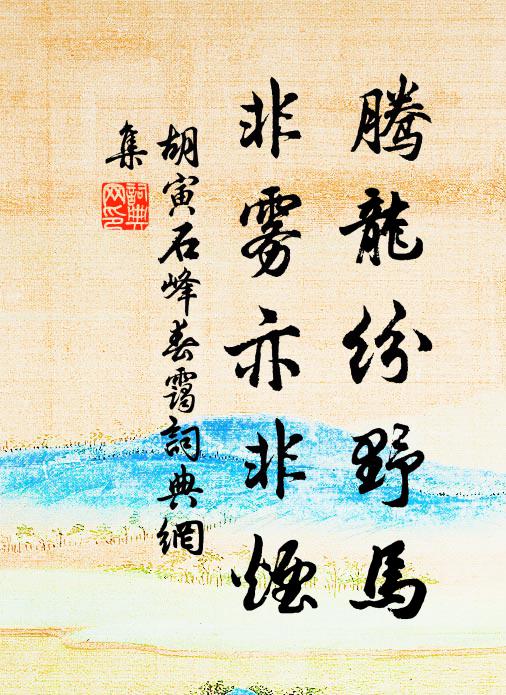 騰龍紛野馬
非雾亦非煙
胡寅石峰春靄詞典網
集
詞典
网印